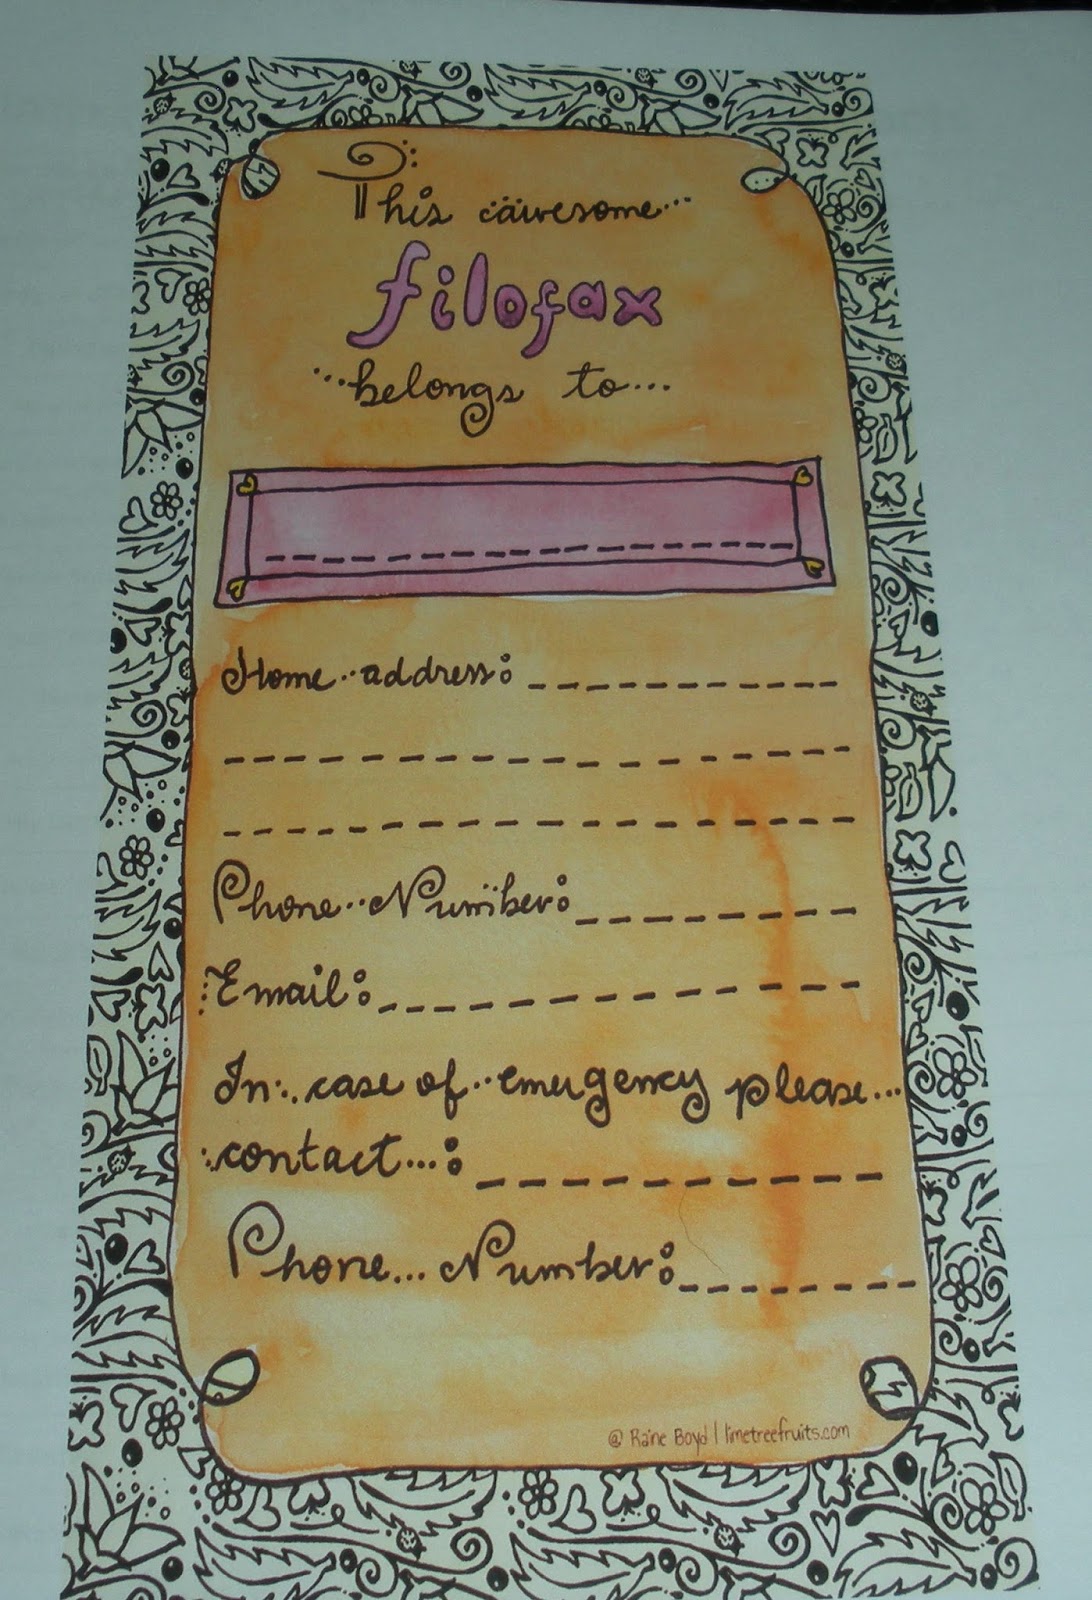 This awesome...
filofax
...belongs to...
Home address:
Phone Number:
Email:
In case of emergency please...
contact...:
Phone... Number:
@ Raine Boyd | limetreefruits.com